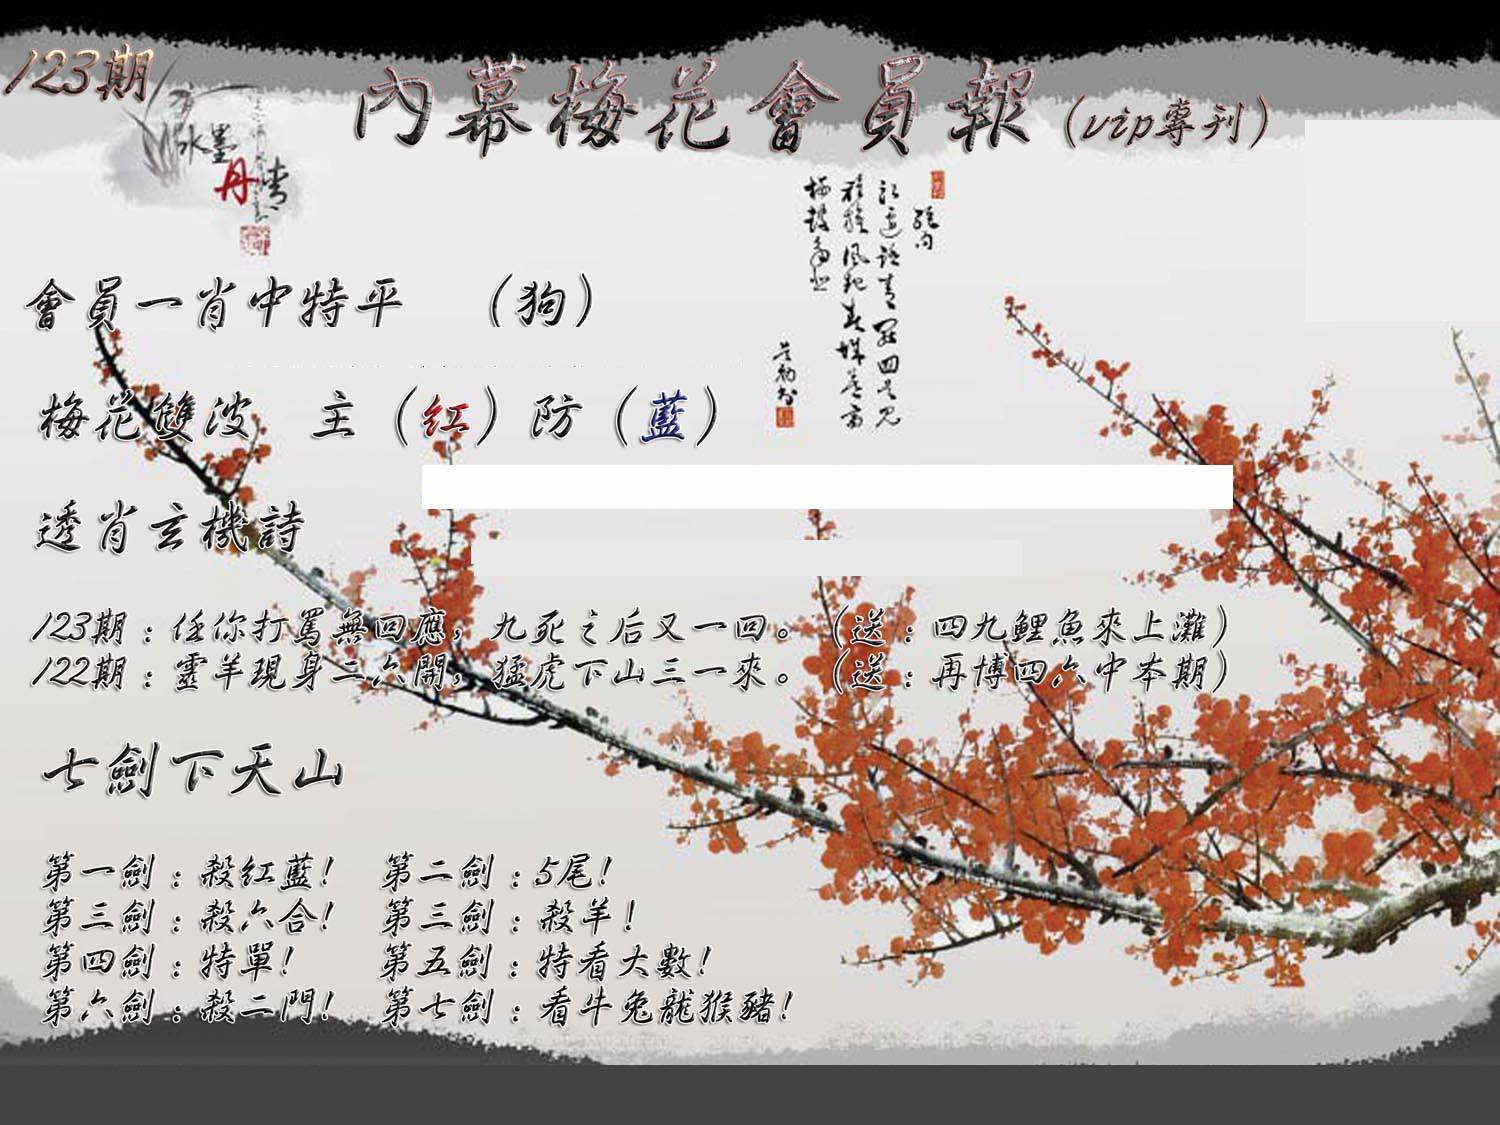 123期
內幕梅花會員報（vip專刊）
水墨
丹青
會員一肖中特平　（狗）
梅花雙波　主（紅）防（藍）
透肖玄機詩
123期：任你打罵無回應，九死之后又一回。（送：四九鯉魚來上灘）
122期：靈羊現身二六開，猛虎下山三一來。（送：再博四六中本期）
七劍下天山
第一劍：殺紅藍！　第二劍：5尾！
第三劍：殺六合！　第三劍：殺羊！
第四劍：特單！　第五劍：特看大數！
第六劍：殺二門！　第七劍：看牛兔龍猴豬！